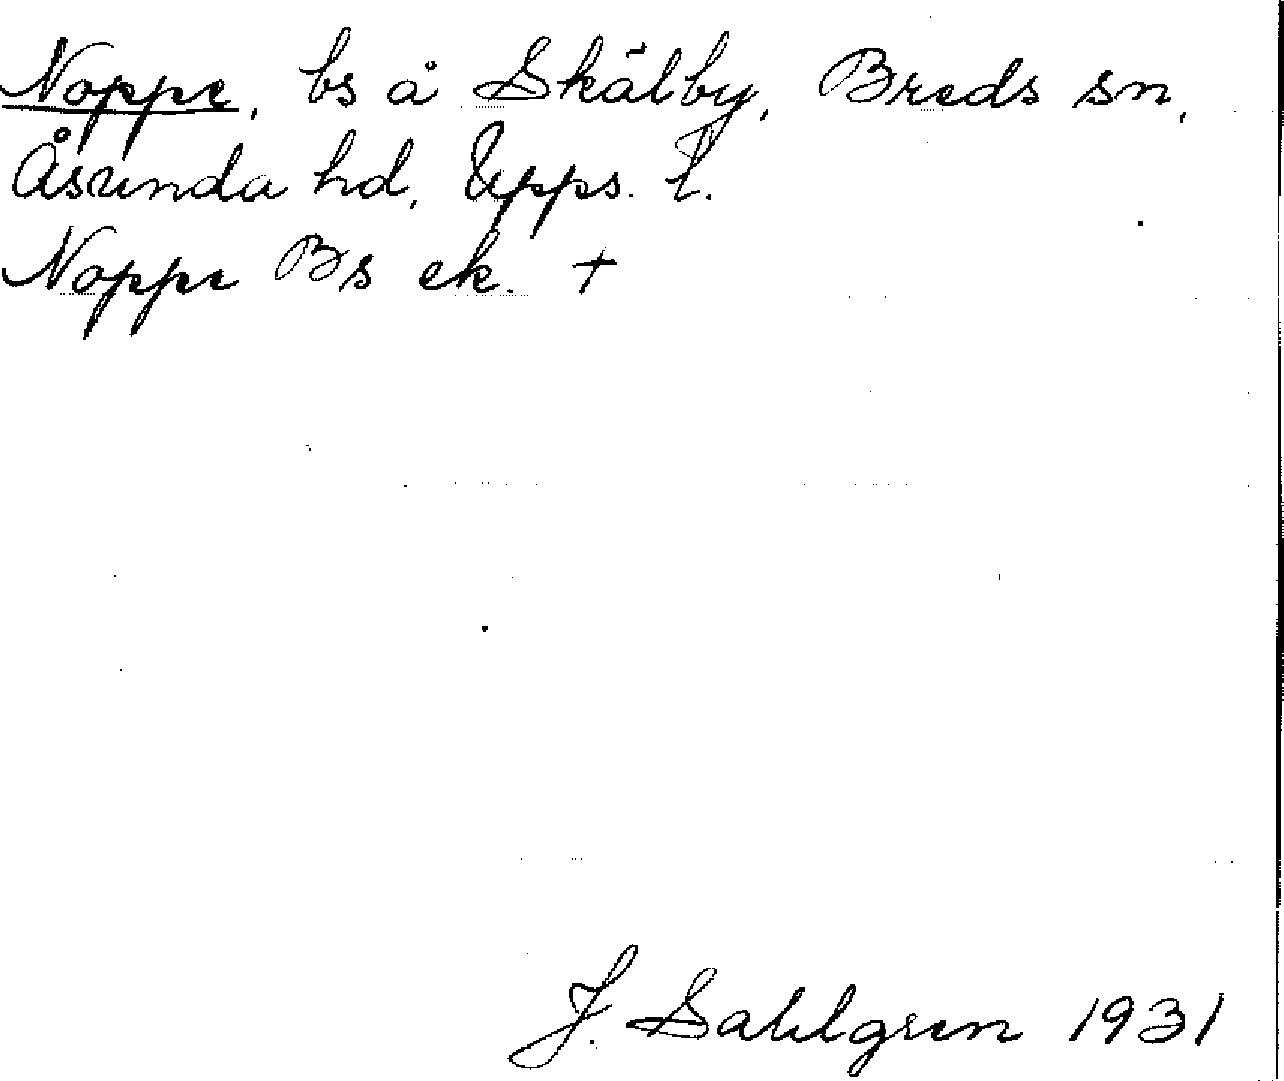 Noppe, bs å Skälby, Breds sn,
Åsunda hd, Upps. l.
Noppe Bs ek. +
J. Sahlgren 1931